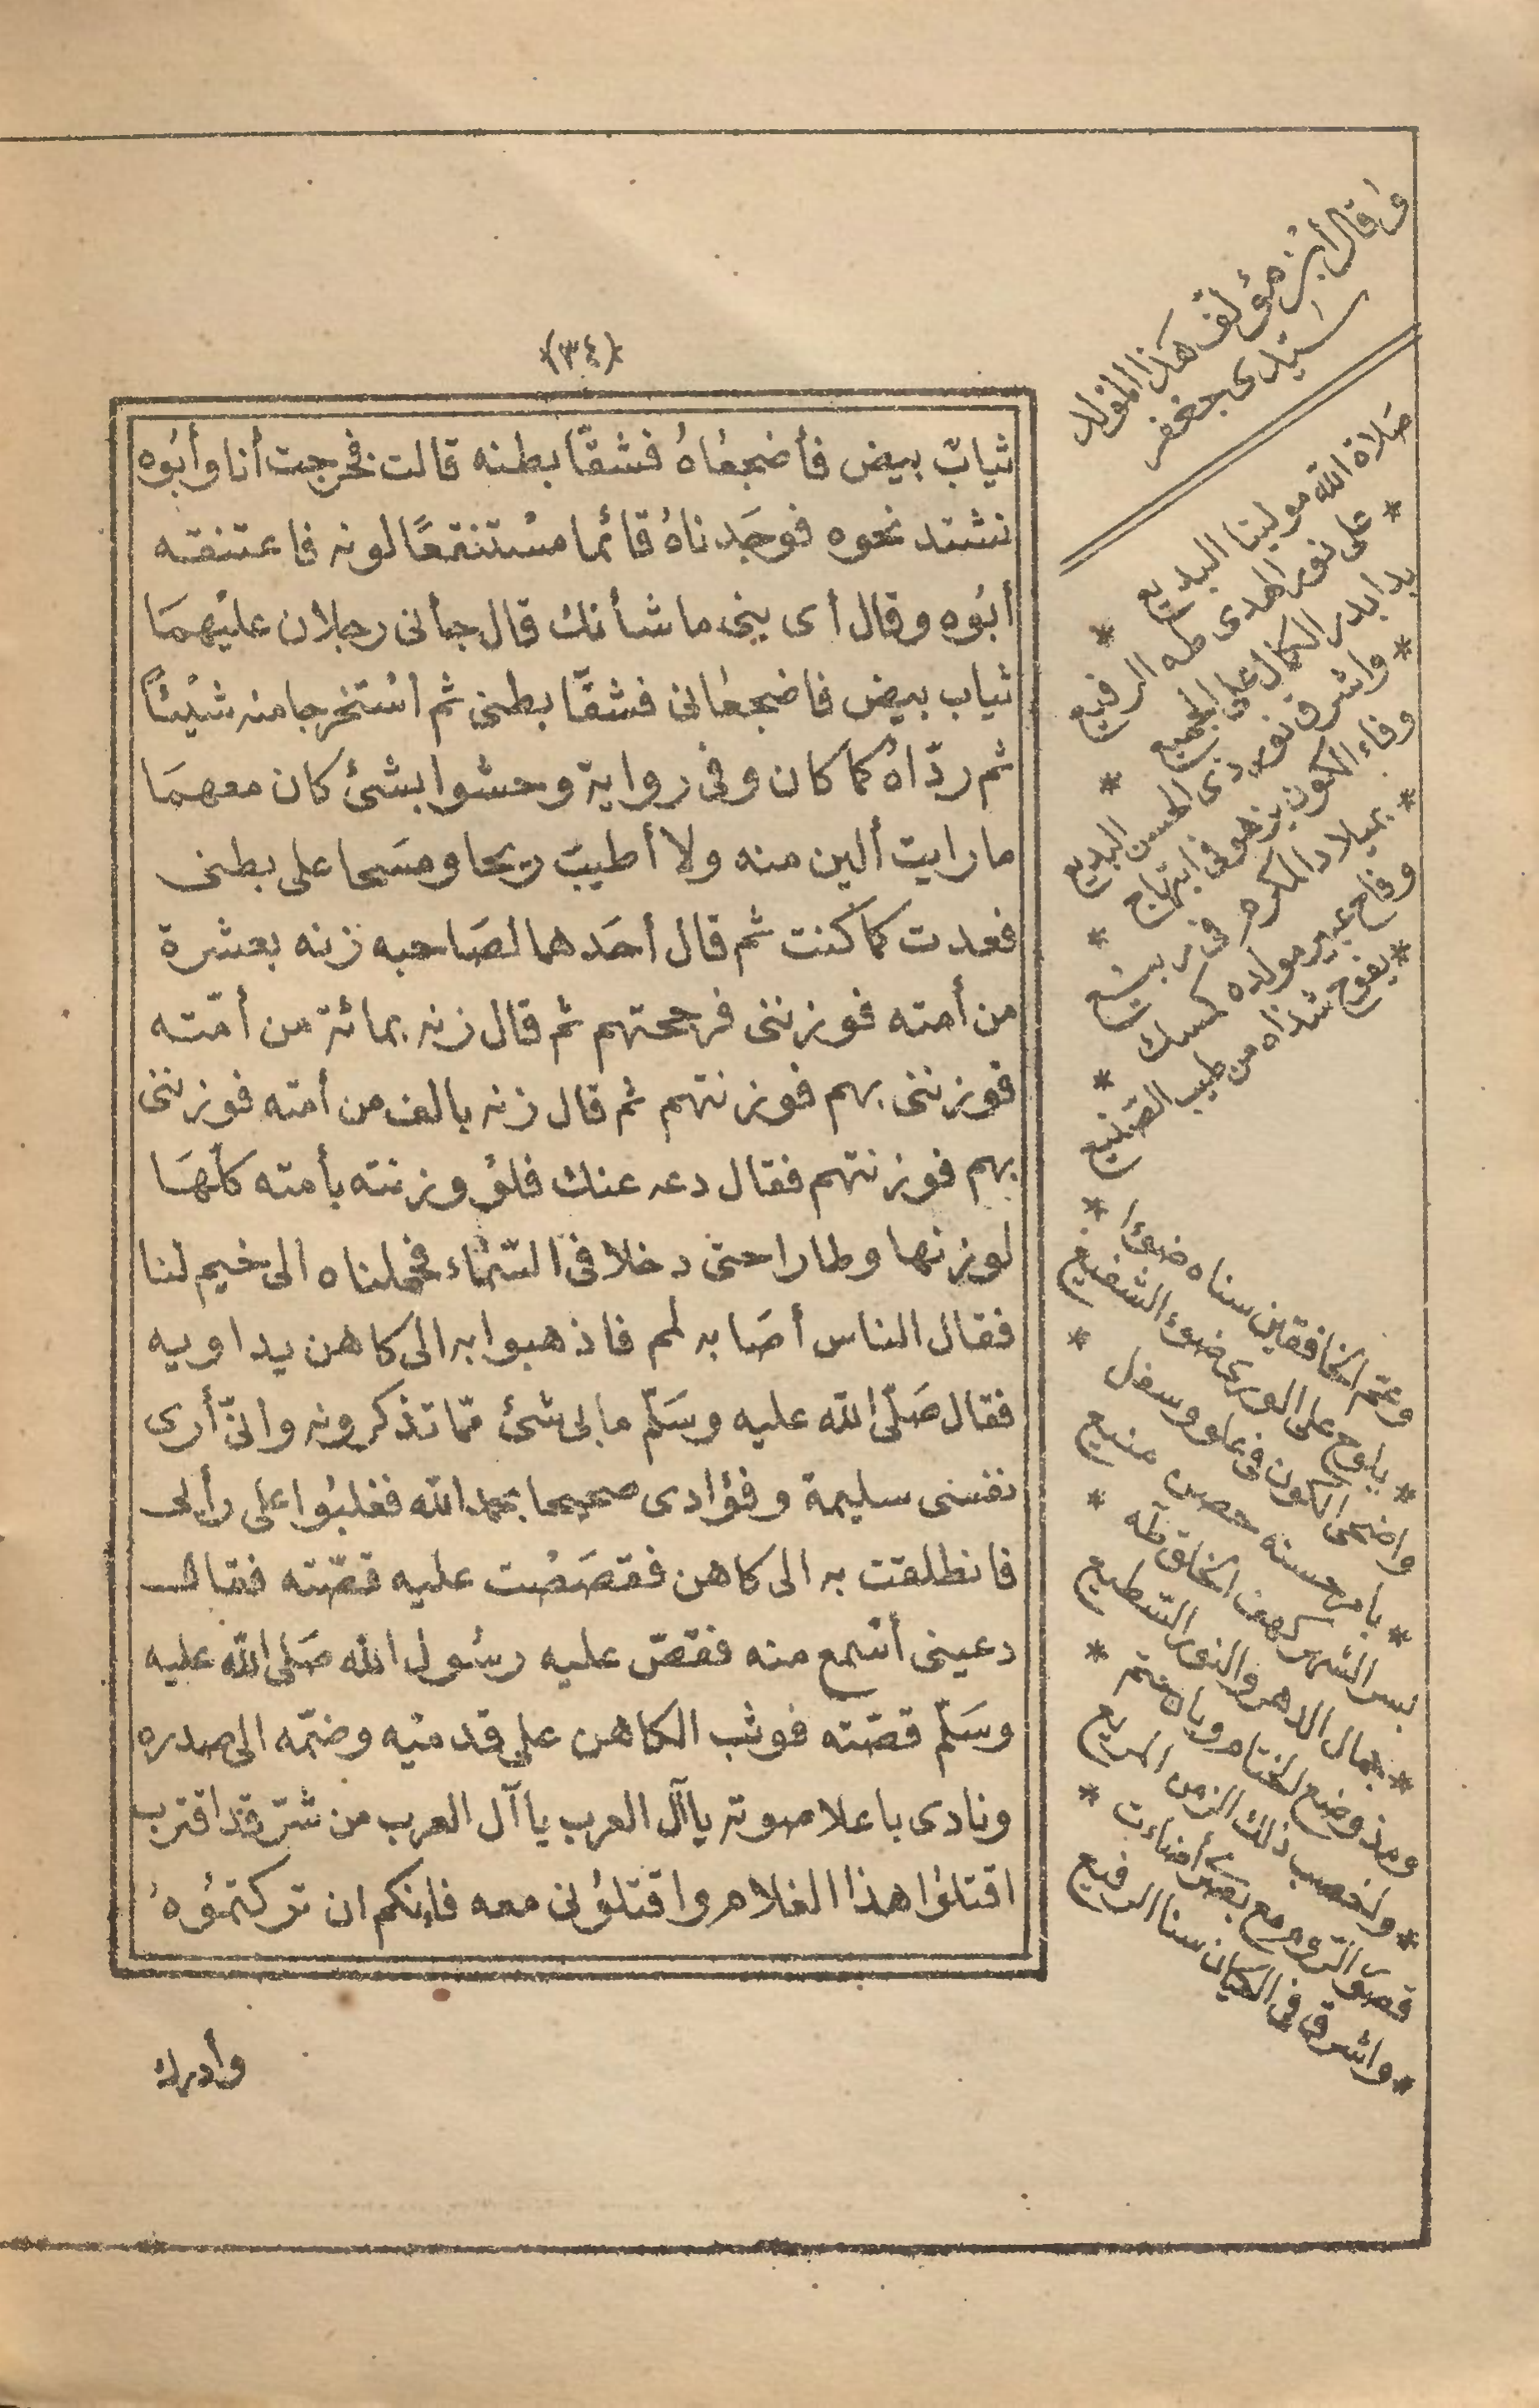 ﴿٣٤﴾
ثيابٌ بيض فأضجعَاهُ فشقّا بطنه قالت فخرجت أنا وأبُوه
نشتد نحوه فوجَدناهُ قائما مسْتنقعًا لونه فاعتنقه
أبُوه وقال أى بنى ما شأنك قال جأنى رجلان عليْهمَا
ثياب بيض فاضجعَانى فشقّا بطنى ثم اسْتخرجا منه شيْئاً
ثم ردّاهُ كما كان وفى رواية وحشوا بشئ كان معهمَا
ما رايت ألين منه ولا أطيبَ ريحا ومسَحا على بطنى
فعدت كما كنت ثم قال أحَدهما لصَاحبه زنه بعشرة
من أمته فوزننى فرجحتهم ثم قال زنه بمائة من أمّته
فوزننى بهم فوزنتهم ثم قال زنه بالف من أمته فوزننى
بهم فوزنتهم فقال دعه عنك فلوْ وزنته بأمته كلهَا
لوزنها وطارا حتى دخلا فى السّمَاء فحملناه الى خيم لنا
فقال الناس أصَابه لمم فاذهبوا به الى كاهن يداويه
فقال صَلّى الله عليه وسَلّم ما بى شئ ممّا تذكرونه وانّى أرى
نفسى سليمة وفؤادى صحيحا بحمد الله فغلبُوا على رأيى
فانطلقت به الى كاهن فقصَصْت عليه قصّته فقال
دعينى أسْمع منه فقصّ عليه رسُول الله صَلى الله عليه
وسَلّم قصّته فوثب الكاهن على قدميْه وضمّه الى صدره
ونادى باعلا صوته يا آل العرب يا آل العرب من شرّ قد اقترب
اقتلوُا هذا الغلام واقتلوُنى معه فإنكم ان تركتموُهُ
وأدرك
وقال أبن مؤلف هَذا الموْلد
سَيّدى جعْفر
صَلاة الله مولينا البديع *
* على نور الهدى طه الرفيع
بدا بدر الكمال على الجميع *
* واشرق نور ذى الحسن البديع
وفاء الكون يزهو فى ابتهاج *
* بميلاد المكرم فى ربيْع
وفاح عبير مولده كمسك *
* يفوح شذاه من طيب الصّنيع
وعمّ الخافقين سناه ضوْءا *
* يلوح على الورى ضوء الشفيْع
واضحى الكون فى علو وسفل *
* يا من حسنه حصن منيع
بسر الشهر كهف الخلق طه *
* جمال الدهر والنور السّطيع
ومذ وضع الختام وبان ختم *
* ولخصب ذلك الزمن المريع
قصور الرّوم مع بصْرى أضاءت *
* واشرق فى الكيان سنا الرفيع